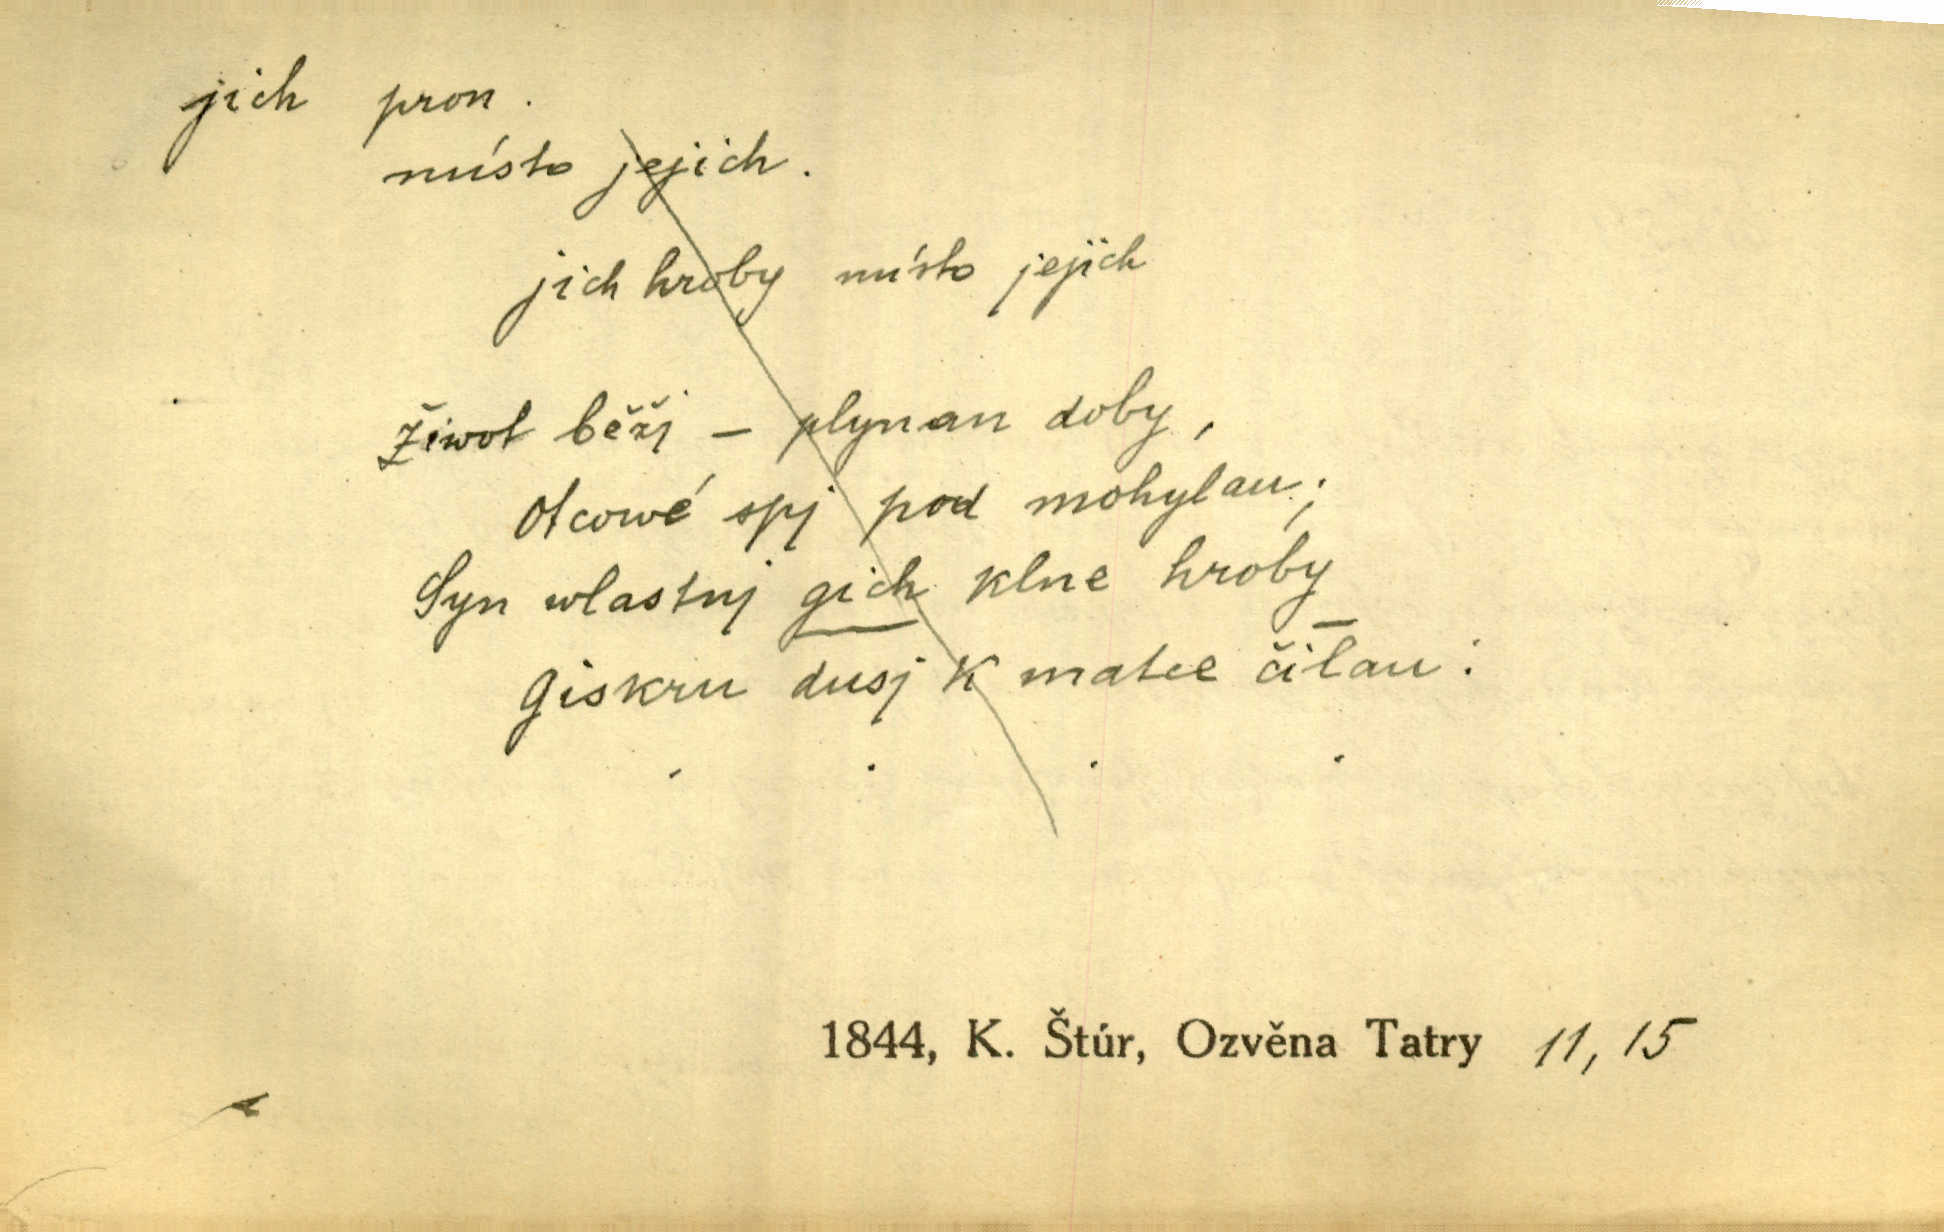 jich pron.
místo jejich.
jich hroby místo jejich
Žiwot běžj – plynau doby,
Otcowé spj pod mohylau;
Syn wlastnj gich klne hroby
Giskru dusj k matce čilau:
. . . .
1844, K. Štúr, Ozvěna Tatry 11, 15